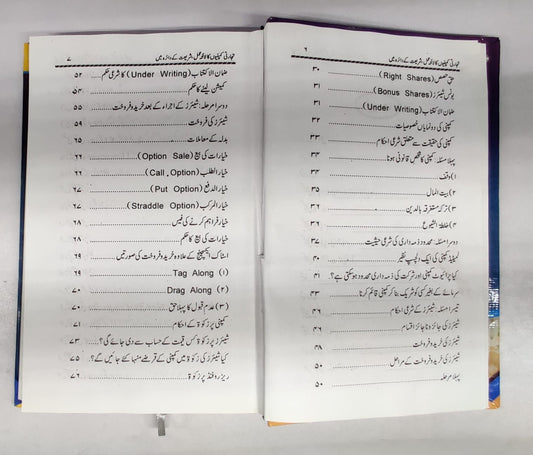 ۶ تجارتی کمپنیوں کا لائحہ عمل، شریعت کے دائرہ میں
حق حصص (Right Shares) ۳۰
بونس شیئرز (Bonus Shares) ۳۱
ضمان الاکتتاب (Under Writing) ۳۱
کمپنی کی دو نمایاں خصوصیات ۳۲
کمپنی کی حقیقت سے متعلق شرعی احکام ۳۳
پہلا مسئلہ: کمپنی کا شخص قانونی ہونا ۳۴
۱) وقف ۳۴
۲) بیت المال ۳۵
۳) ترکہ مستغرقہ بالدین
۴) خلطۃ الشیوع ۳۶
دوسرا مسئلہ: محدود ذمہ داری کی شرعی حیثیت ۳۷
لمیٹڈ کمپنی کی ایک دلچسپ نظیر ۴۰
کیا پرائیوٹ کمپنی اور شرکت کی ذمہ داری محدود ہوسکتی ہے؟ ۴۱
سرمائے کے بغیر کسی کو شریک بنا کر کمپنی قائم کرنا ۴۳
تیسرا مسئلہ: شیئرز کے شرعی احکام ۴۶
شیئرز کی جائز و ناجائز اقسام ۴۶
شیئرز کی خرید و فروخت ۴۸
شیئرز کی خرید و فروخت کے مراحل ۵۰
پہلا مرحلہ ۵۰
تجارتی کمپنیوں کا لائحہ عمل، شریعت کے دائرہ میں ۷
ضمان الاکتتاب (Under Writing) کا شرعی حکم ۵۲
کمیشن لینے کا حکم ۵۴
دوسرا مرحلہ: شیئرز کے اجراء کے بعد خرید و فروخت ۵۵
شیئرز کی فروخت ۵۹
بدلہ کے معاملات ۶۵
خیارات کی بیع (Option Sale) ۶۶
خیار الطلب (Call, Option) ۶۶
خیار الدفع (Put Option) ۶۷
خیار المرکب (Straddle Option) ۶۷
خیار فراہم کرنے کی فیس ۶۸
خیارات کی بیع کا حکم ۶۸
اسٹاک ایکسچینج کے علاوہ خرید و فروخت کی صورتیں ۶۹
(۱) Tag Along ۶۹
(۲) Drag Along ۷۰
(۳) عدم قبول کا پہلا حق ۷۰
کمپنی پر زکوٰۃ کے احکام ۷۱
شیئرز پر زکوٰۃ کس قیمت کے حساب سے دی جائے گی؟ ۷۳
کیا شیئرز کی زکوٰۃ میں کمپنی کے قرضے منہا کئے جائیں گے؟ ۷۵
ریزرو فنڈ پر زکوٰۃ ۷۶